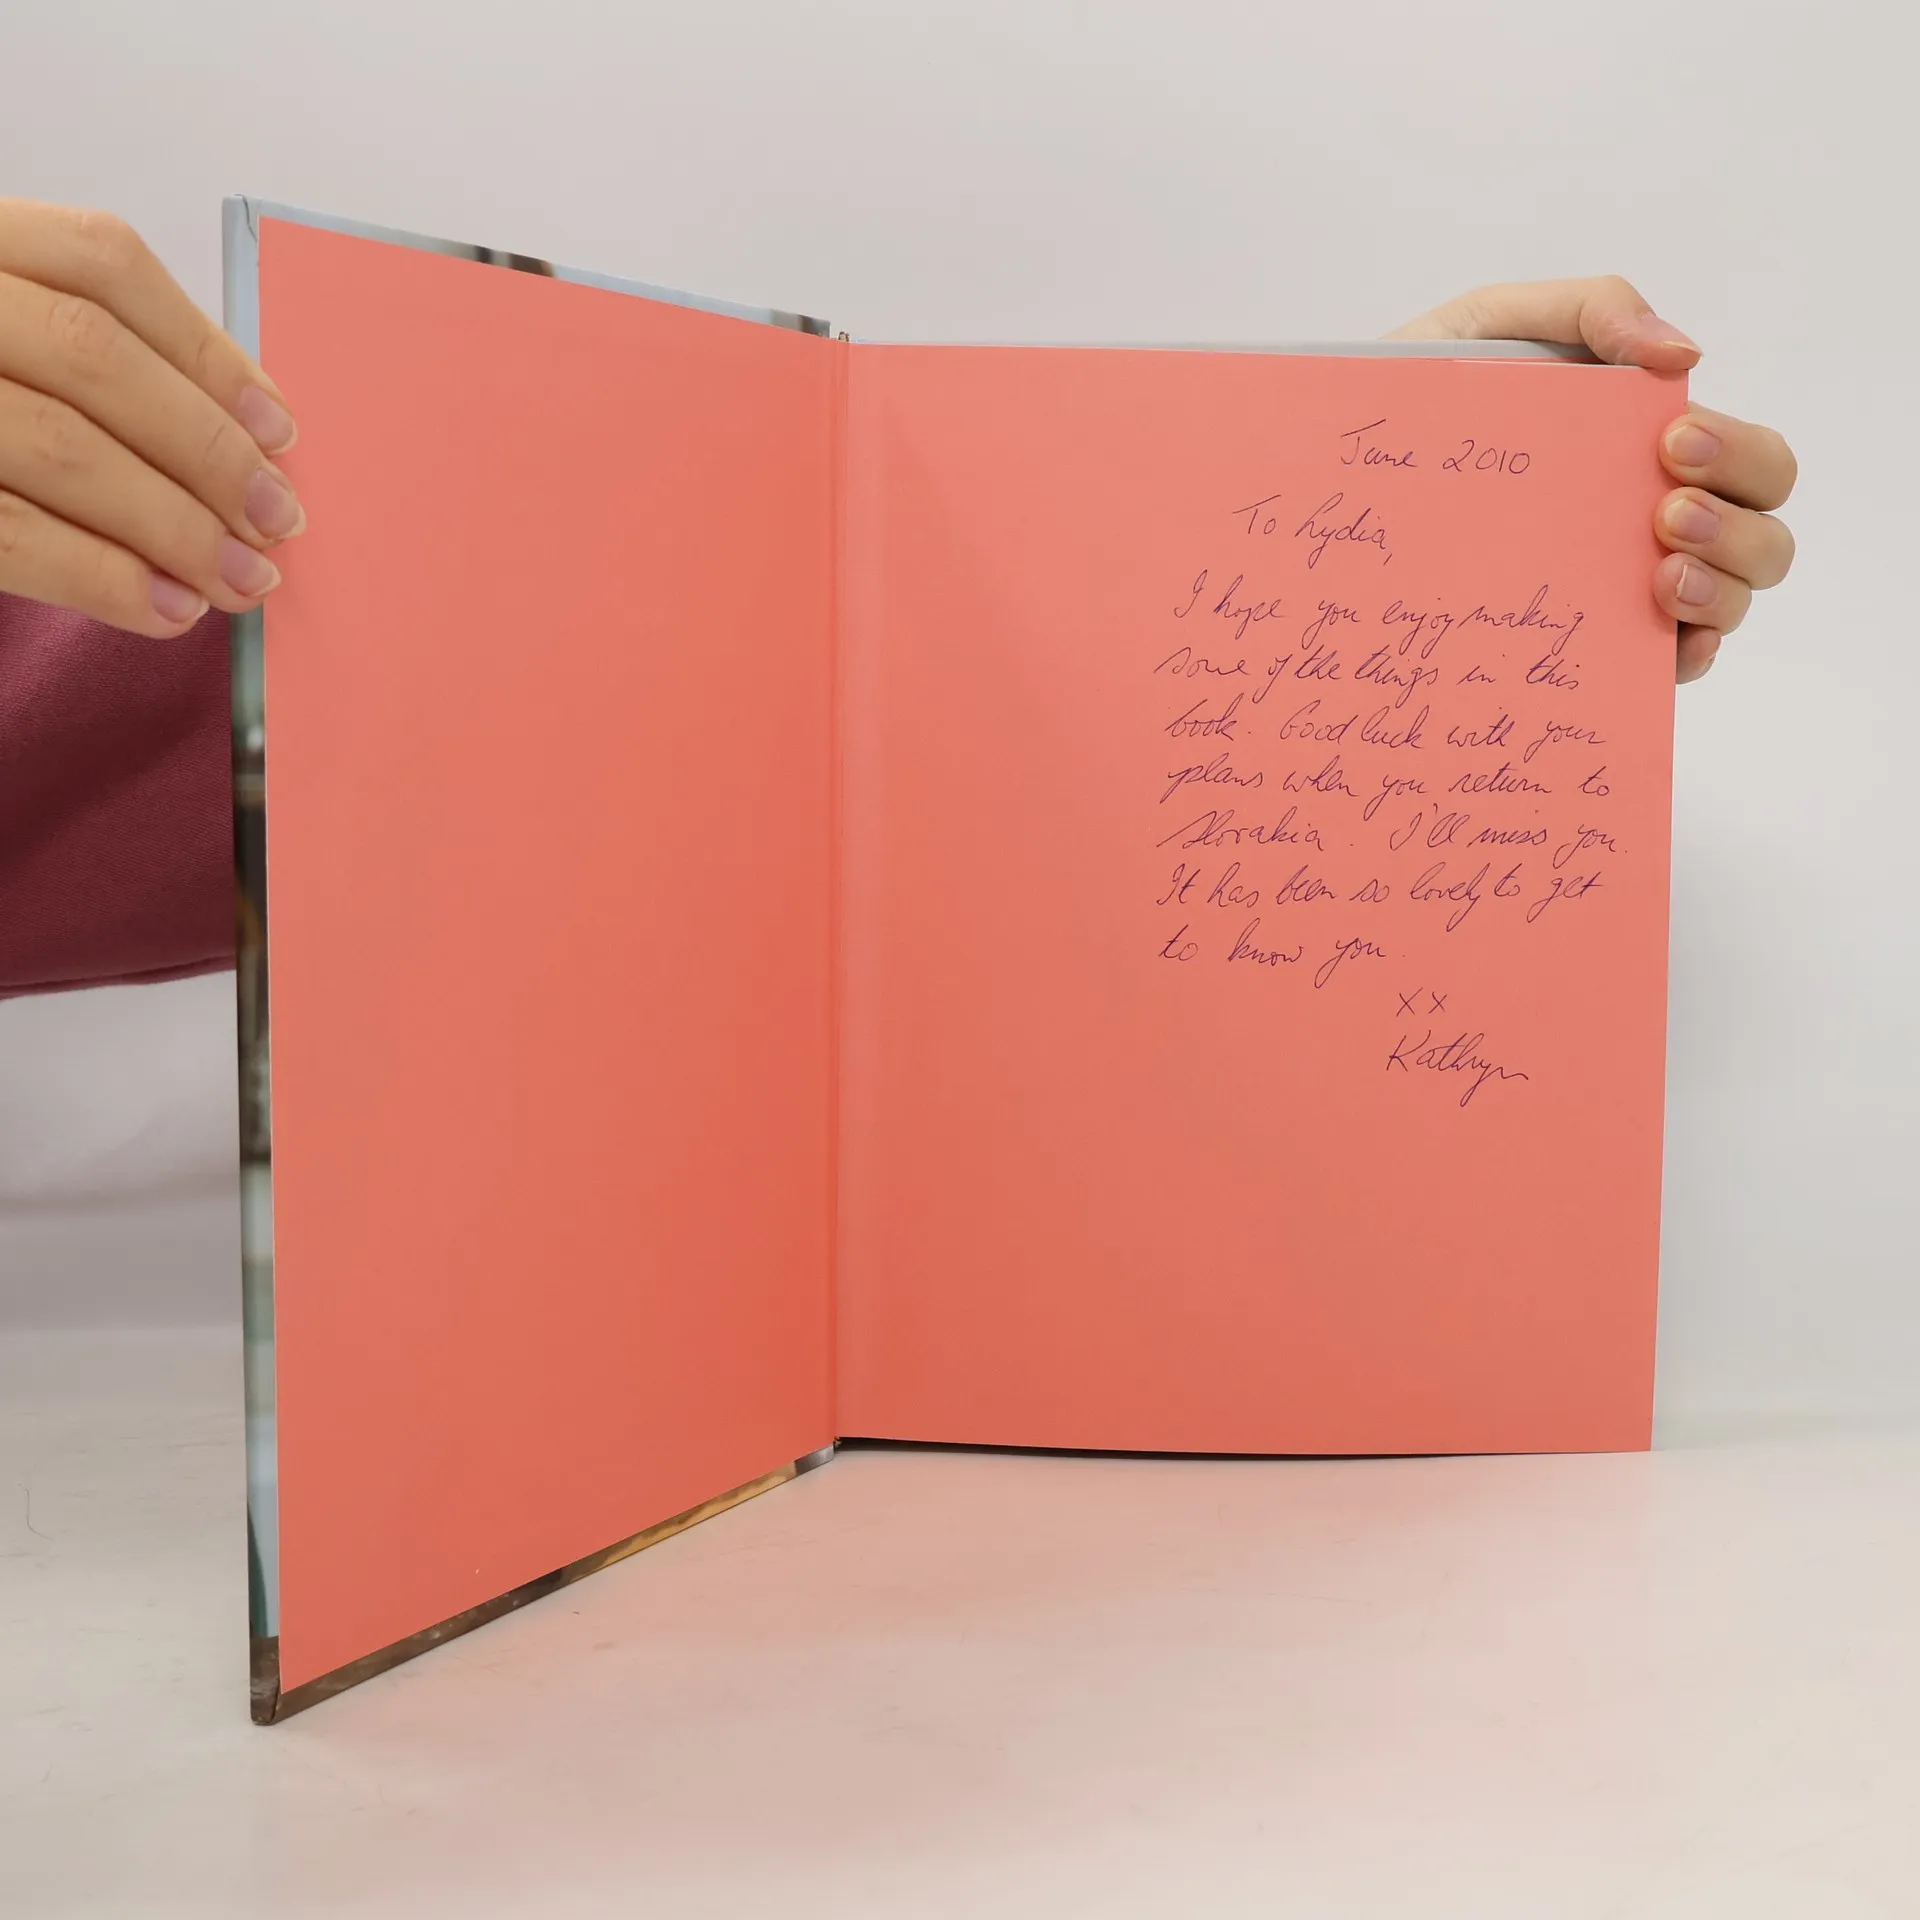 June 2010
To Lydia,
I hope you enjoy making
some of the things in this
book. Good luck with your
plans when you return to
Slovakia. I'll miss you.
It has been so lovely to get
to know you.
xx
Kathryn